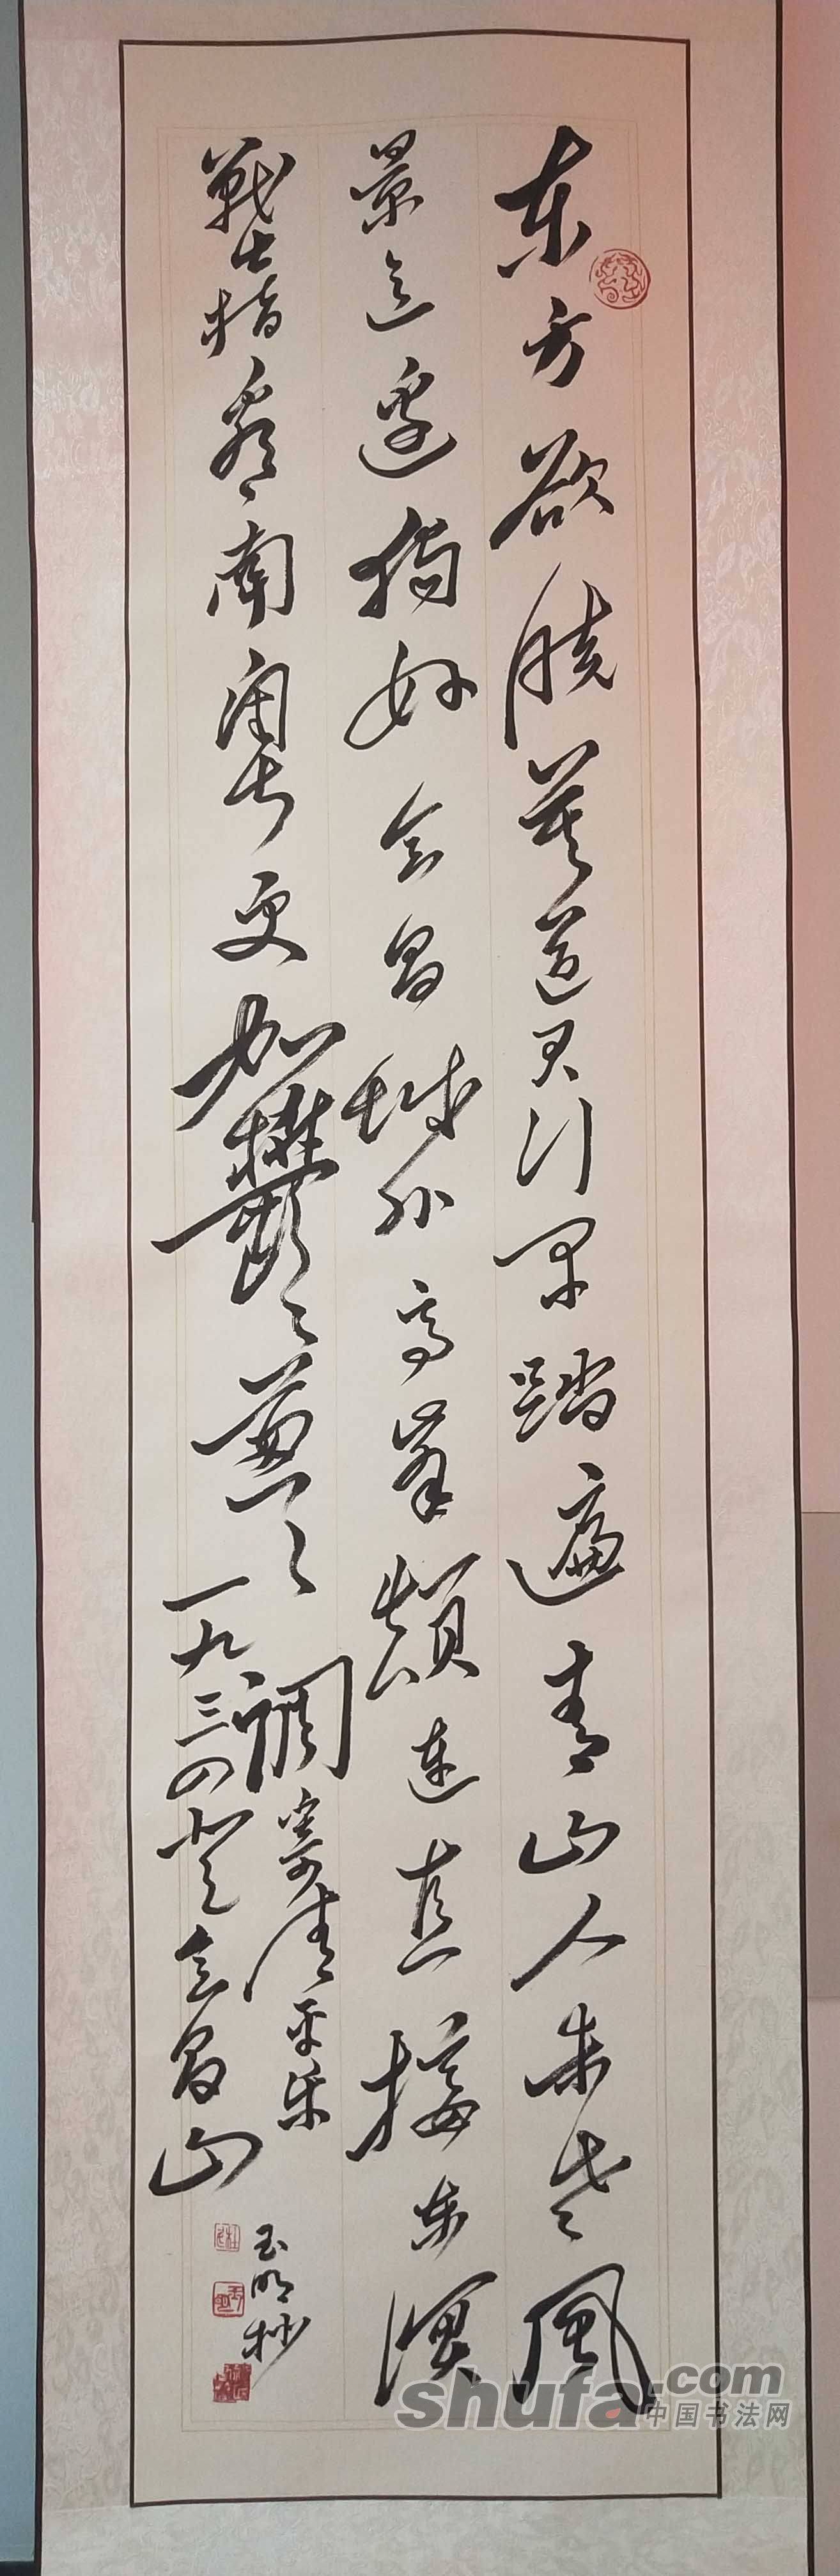 东方欲晓莫道君行早踏遍青山人未老風
景这邊独好会昌城外高峯颠连直接东溟
戰士指看南粤更加鬱々葱々
调寄清平乐
一九三四登会昌山
玉明抄
shufa.com
中国书法网